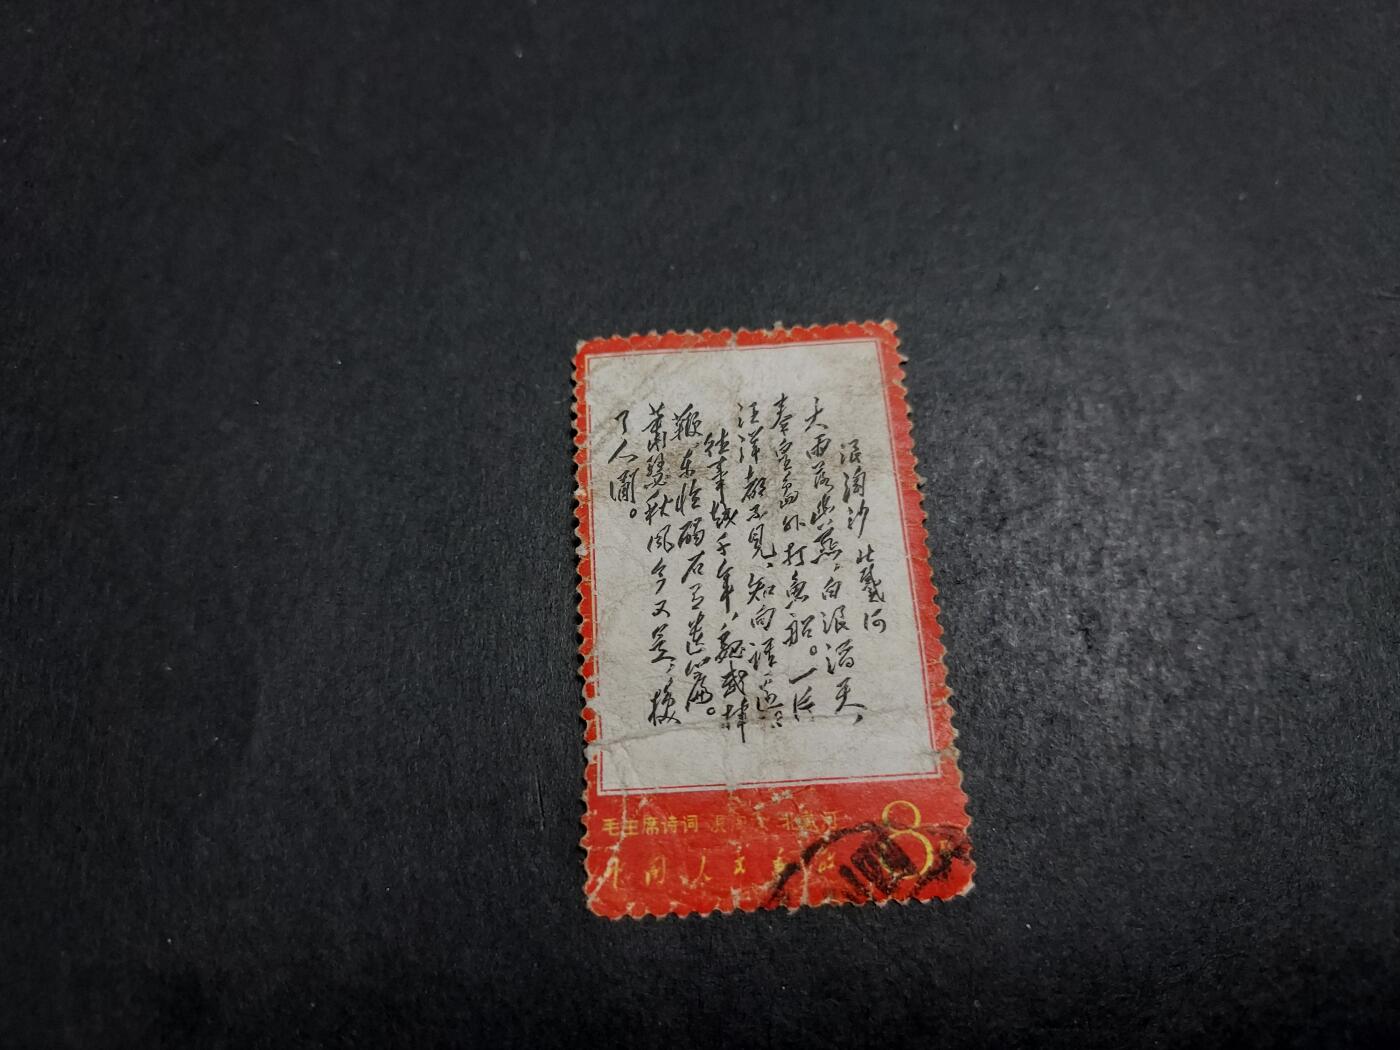 浪淘沙 北戴河
大雨落幽燕，白浪滔天，
秦皇岛外打鱼船。一片
汪洋都不见，知向谁边？
往事越千年，魏武挥
鞭，东临碣石有遗篇。
萧瑟秋风今又是，换
了人间。
毛主席诗词 浪淘沙 北戴河
中国人民邮政
8